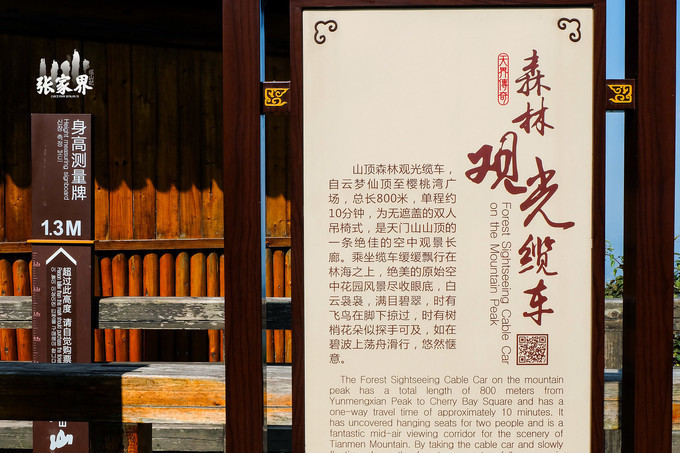 张家界
身高测量牌
Height measuring signboard
1.3M
超过此高度 请自觉购票
天界传奇
森林
观光
缆车
Forest Sightseeing Cable Car
on the Mountain Peak
山顶森林观光缆车，
自云梦仙顶至樱桃湾广
场，总长800米，单程约
10分钟，为无遮盖的双人
吊椅式，是天门山山顶的
一条绝佳的空中观景长
廊。乘坐缆车缓缓飘行在
林海之上，绝美的原始空
中花园风景尽收眼底，白
云袅袅，满目碧翠，时有
飞鸟在脚下掠过，时有树
梢花朵似探手可及，如在
碧波上荡舟滑行，悠然惬
意。
The Forest Sightseeing Cable Car on the mountain
peak has a total length of 800 meters from
Yunmengxian Peak to Cherry Bay Square and has a
one-way travel time of approximately 10 minutes. It
has uncovered hanging seats for two people and is a
fantastic mid-air viewing corridor for the scenery of
Tianmen Mountain. By taking the cable car and slowly